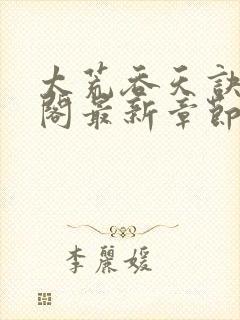 大荒吞天訣
閣最新章節
李麗媛